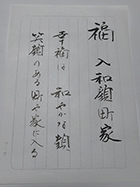 福入和顔町家
幸福は和やかな顔
笑顔のある町や家に入る